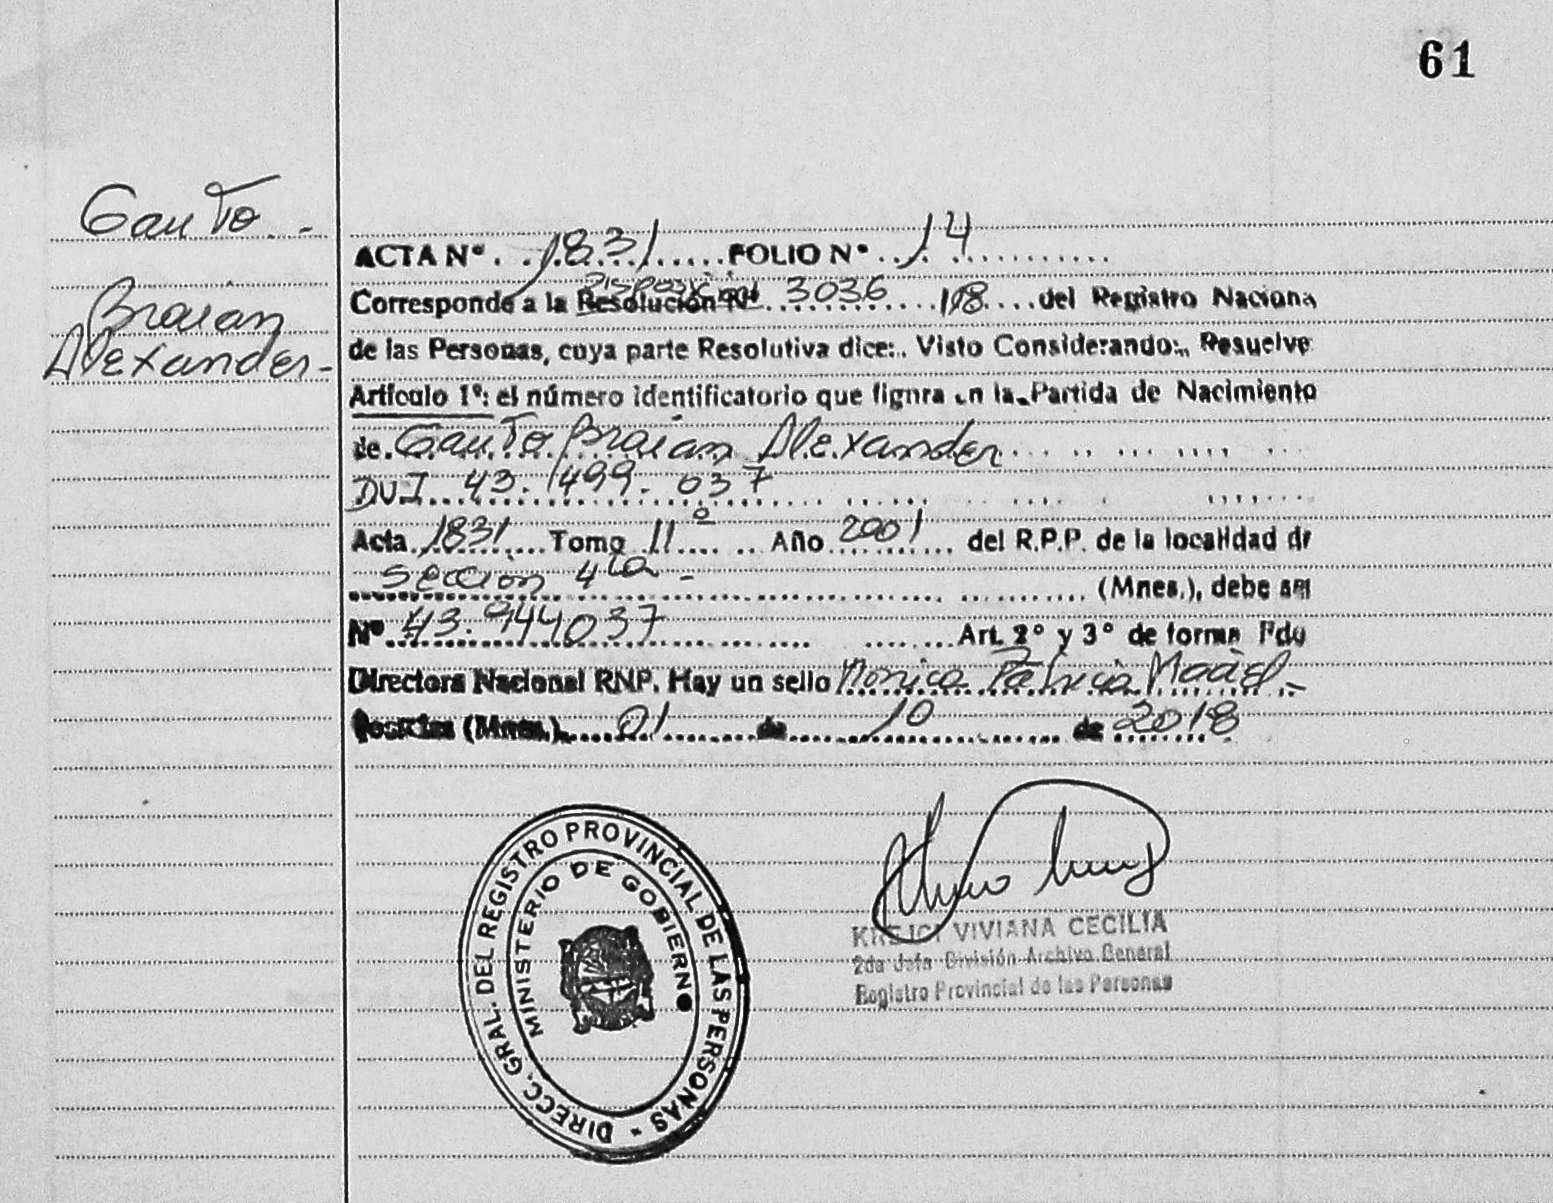 61
Gauto.-
Braian
Alexander-
ACTA Nº. .1831.....FOLIO Nº ..14..........
Disposición
Corresponde a la Resolución Nº 3036....118....del Registro Naciona
de las Personas, cuya parte Resolutiva dice:. Visto Considerando:,, Resuelve
Artículo 1º: el número identificatorio que figura en la Partida de Nacimiento
de.Gauto Braian Alexander
DUI 43.499.037
Acta 1831 Tomo 11º Año 2001 del R.P.P. de la localidad de
Sección 4ta - (Mnes.), debe ser
Nº 43.944037 Art. 2º y 3º de forma Fdo
Directora Nacional RNP. Hay un sello Monica Patricia
Posadas (Mnes.), 01 de 10 de 2018
DIRECC. GRAL. DEL REGISTRO PROVINCIAL DE LAS PERSONAS -
MINISTERIO DE GOBIERNO
KREJCI VIVIANA CECILIA
2da Jefa División Archivo General
Registro Provincial de las Personas